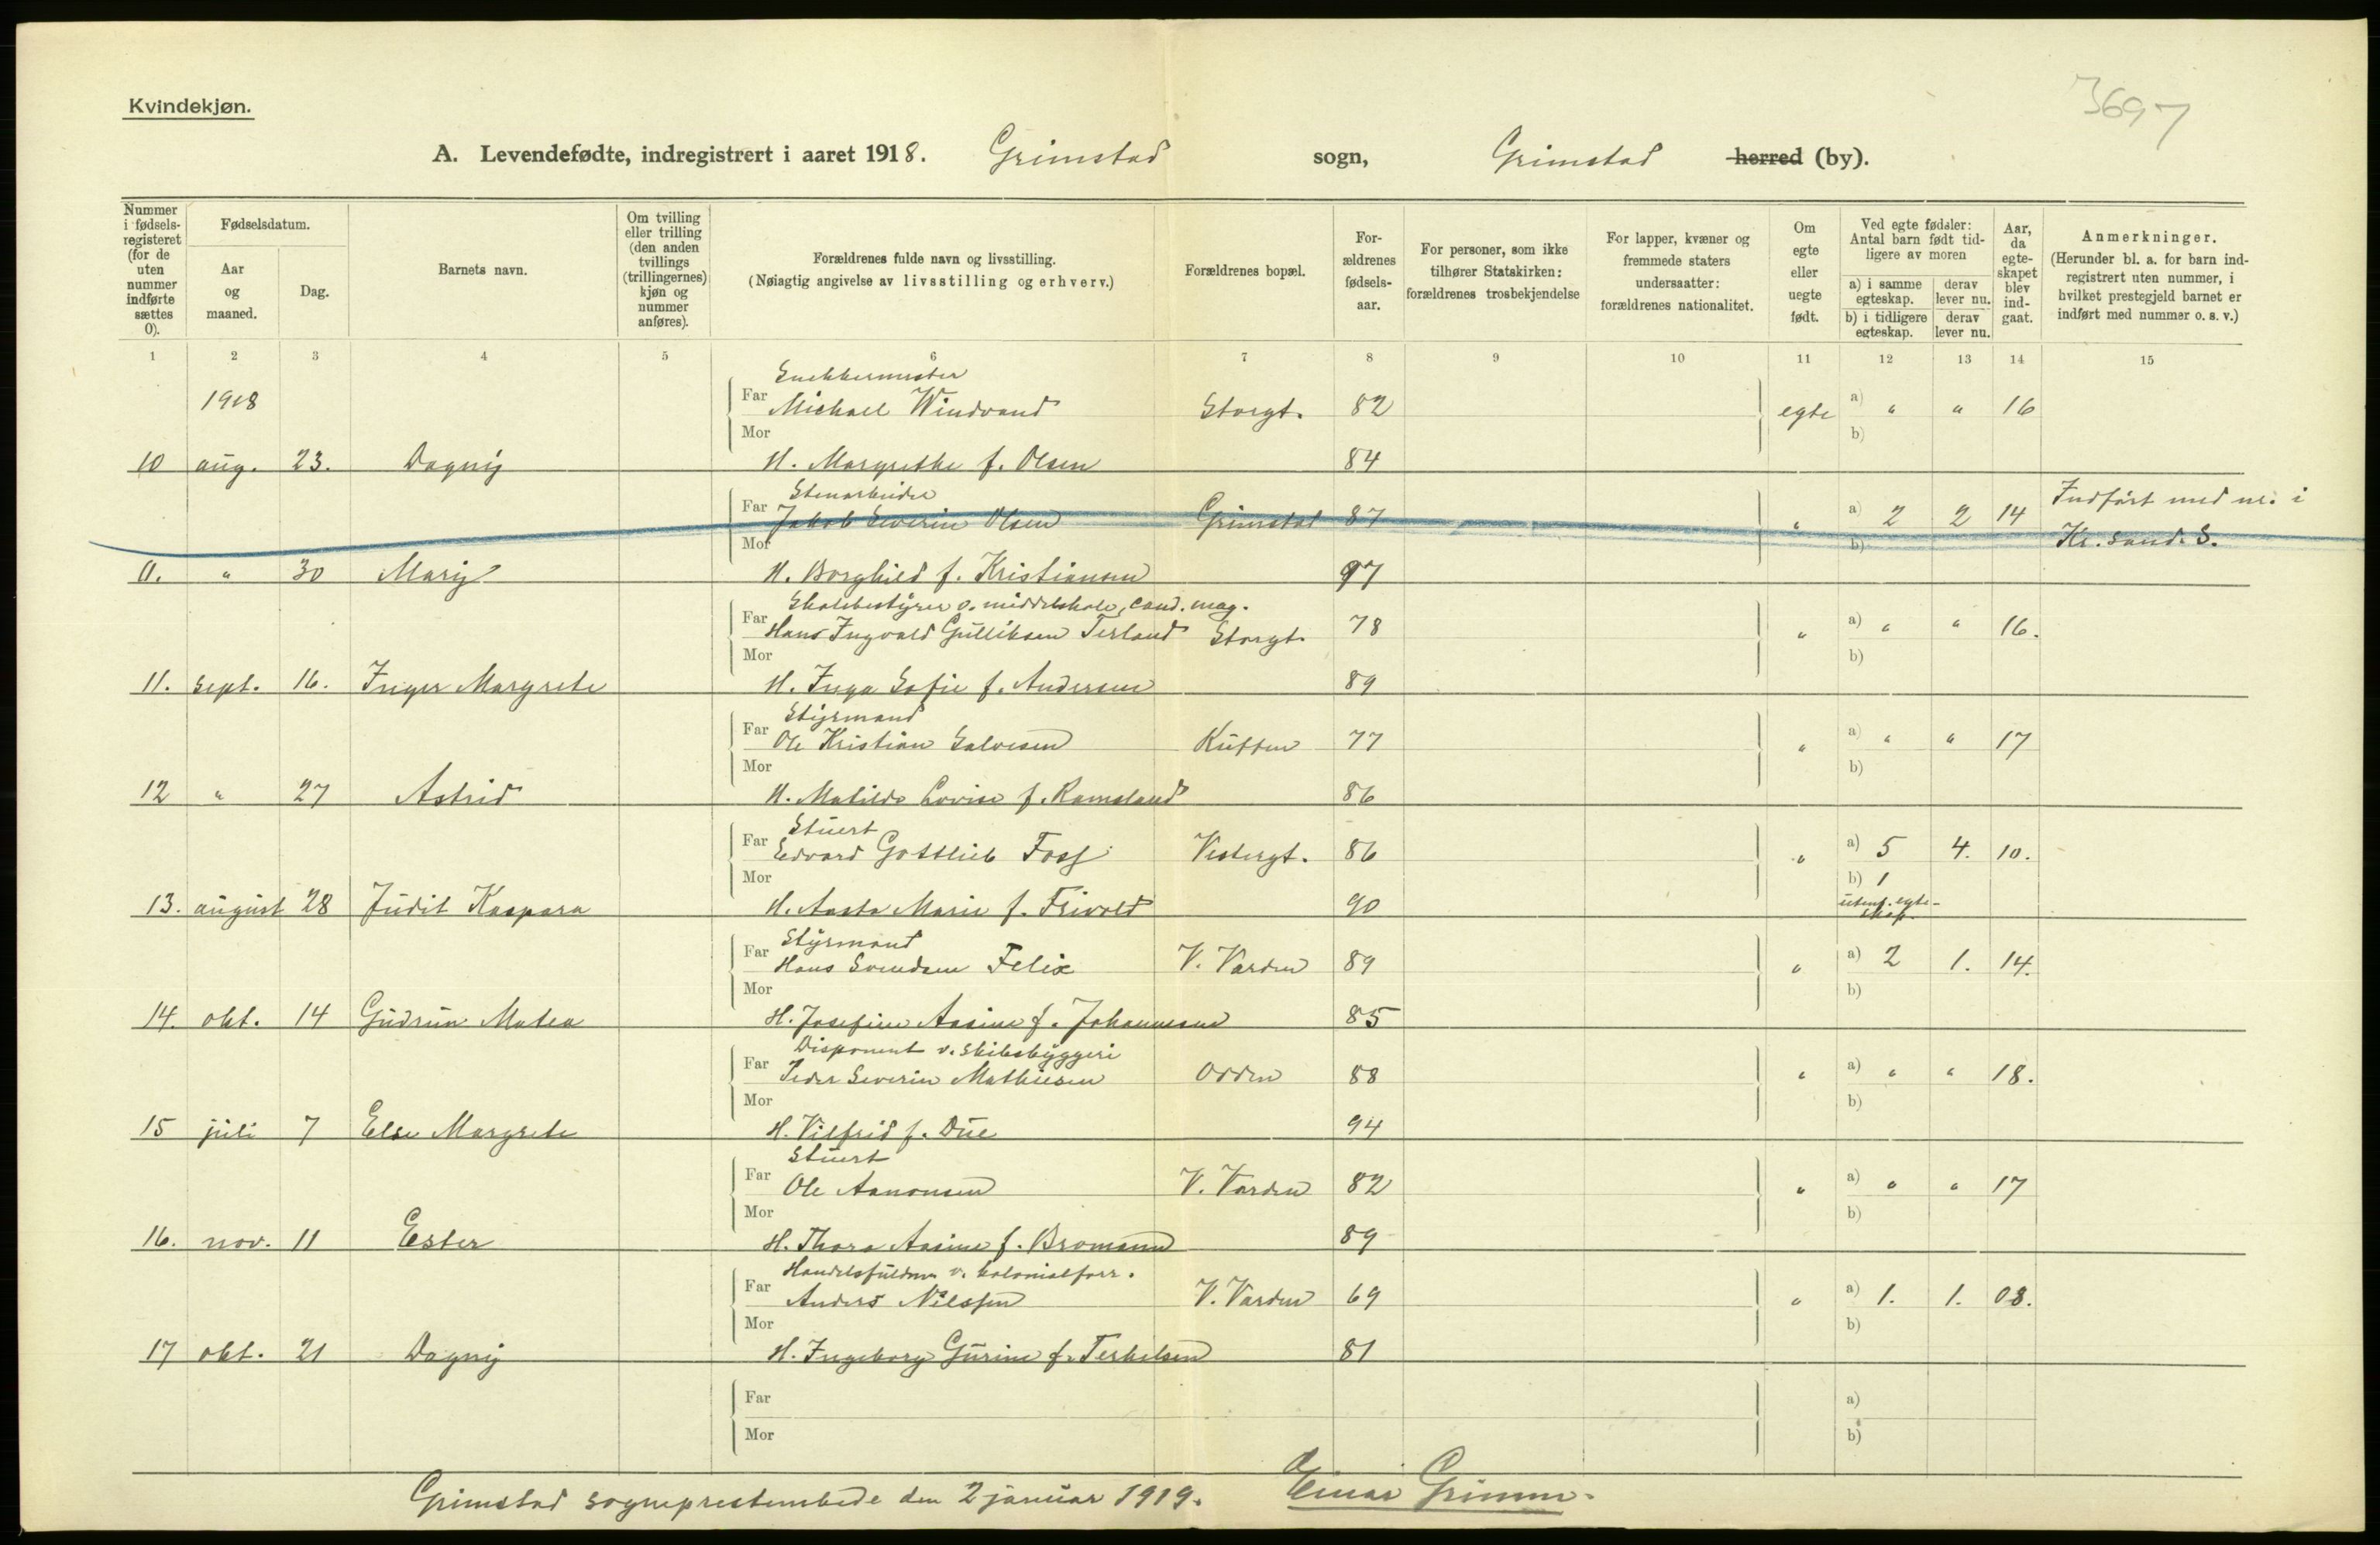 3697
Kvindekjøn.
A. Levendefødte, indregistrert i aaret 1918. Grimstad sogn, Grimstad herred (by).
Nummer i fødsels-registeret (for de uten nummer indførte sættes 0).
Fødselsdatum.
Aar og maaned.
Dag.
Barnets navn.
Om tvilling eller trilling (den anden tvillings (trillingernes) kjøn og nummer anføres).
Forældrenes fulde navn og livsstilling.
(Nøiagtig angivelse av livsstilling og erhverv.)
Forældrenes bopæl.
For-ældrenes fødsels-aar.
For personer, som ikke tilhører Statskirken: forældrenes trosbekjendelse
For lapper, kvæner og fremmede staters undersaatter: forældrenes nationalitet.
Om egte eller uegte født.
Ved egte fødsler: Antal barn født tid-ligere av moren
a) i samme egteskap.
derav lever nu.
b) i tidligere egteskap.
derav lever nu.
Aar, da egte-skapet blev ind-gaat.
Anmerkninger.
(Herunder bl. a. for barn ind-registrert uten nummer, i hvilket prestegjeld barnet er indført med nummer o. s. v.)
1 2 3 4 5 6 7 8 9 10 11 12 13 14 15
Snekkermester
1918 Far Michael Windvand Storgt. 82 egte a) " " 16
Mor b)
10 aug. 23. Dagny H. Margrethe f. Olsen 84
Stenarbeider Indført med nr. i
Far Jakob Severin Olsen Grimstad 87 " a) 2 2 14
Mor b) Kr. sand. S.
0. " 30 Mary H. Borghild f. Kristiansen 97
Skolebestyrer v. middelskole, cand. mag.
Far Hans Ingvald Gulliksen Terland Storgt. 78 " a) " " 16.
Mor b)
11. sept. 16. Inger Margrete H. Inga Sofie f. Andersen 89
Styrmand
Far Ole Kristian Salvesen 77 " a) " " 17
Mor b)
12 " 27 Astrid H. Matilde Lovise f. Ramsland 86
Stuert
Far Edvard Gottlieb Foss Vestergt. 86 " a) 5 4. 10.
Mor b) 1
13. august 28 Judit Kaspara H. Aasta Marie f. Frivold 90 utenf. egte-
skap.
Styrmand
Far Hans Svendsen Felix V. Varden 89 " a) 2 1. 14.
Mor b)
14. okt. 14 Gudrun Matea H. Josefine Aasine f. Johannesen 85
Disponent v. skibsbyggeri
Far Peder Severin Mathiesen Odden 88 " a) " " 18.
Mor b)
15 juli 7 Else Margrete H. Vilfrid f. Due 94
Stuert
Far Ole Aanonsen V. Varden 82 " a) " " 17
Mor b)
16. nov. 11 Ester H. Thora Aasine f. Bromann 89
Handelsfuldm. v. kolonialforr.
Far Anders Nilssen V. Varden 69 " a) 1. 1. 08.
Mor b)
17 okt. 21 Dagny H. Ingeborg Gurine f. Terkelsen 81
Far a)
Mor b)
Grimstad sogneprestembede den 2 januar 1919. Einar Grimm.